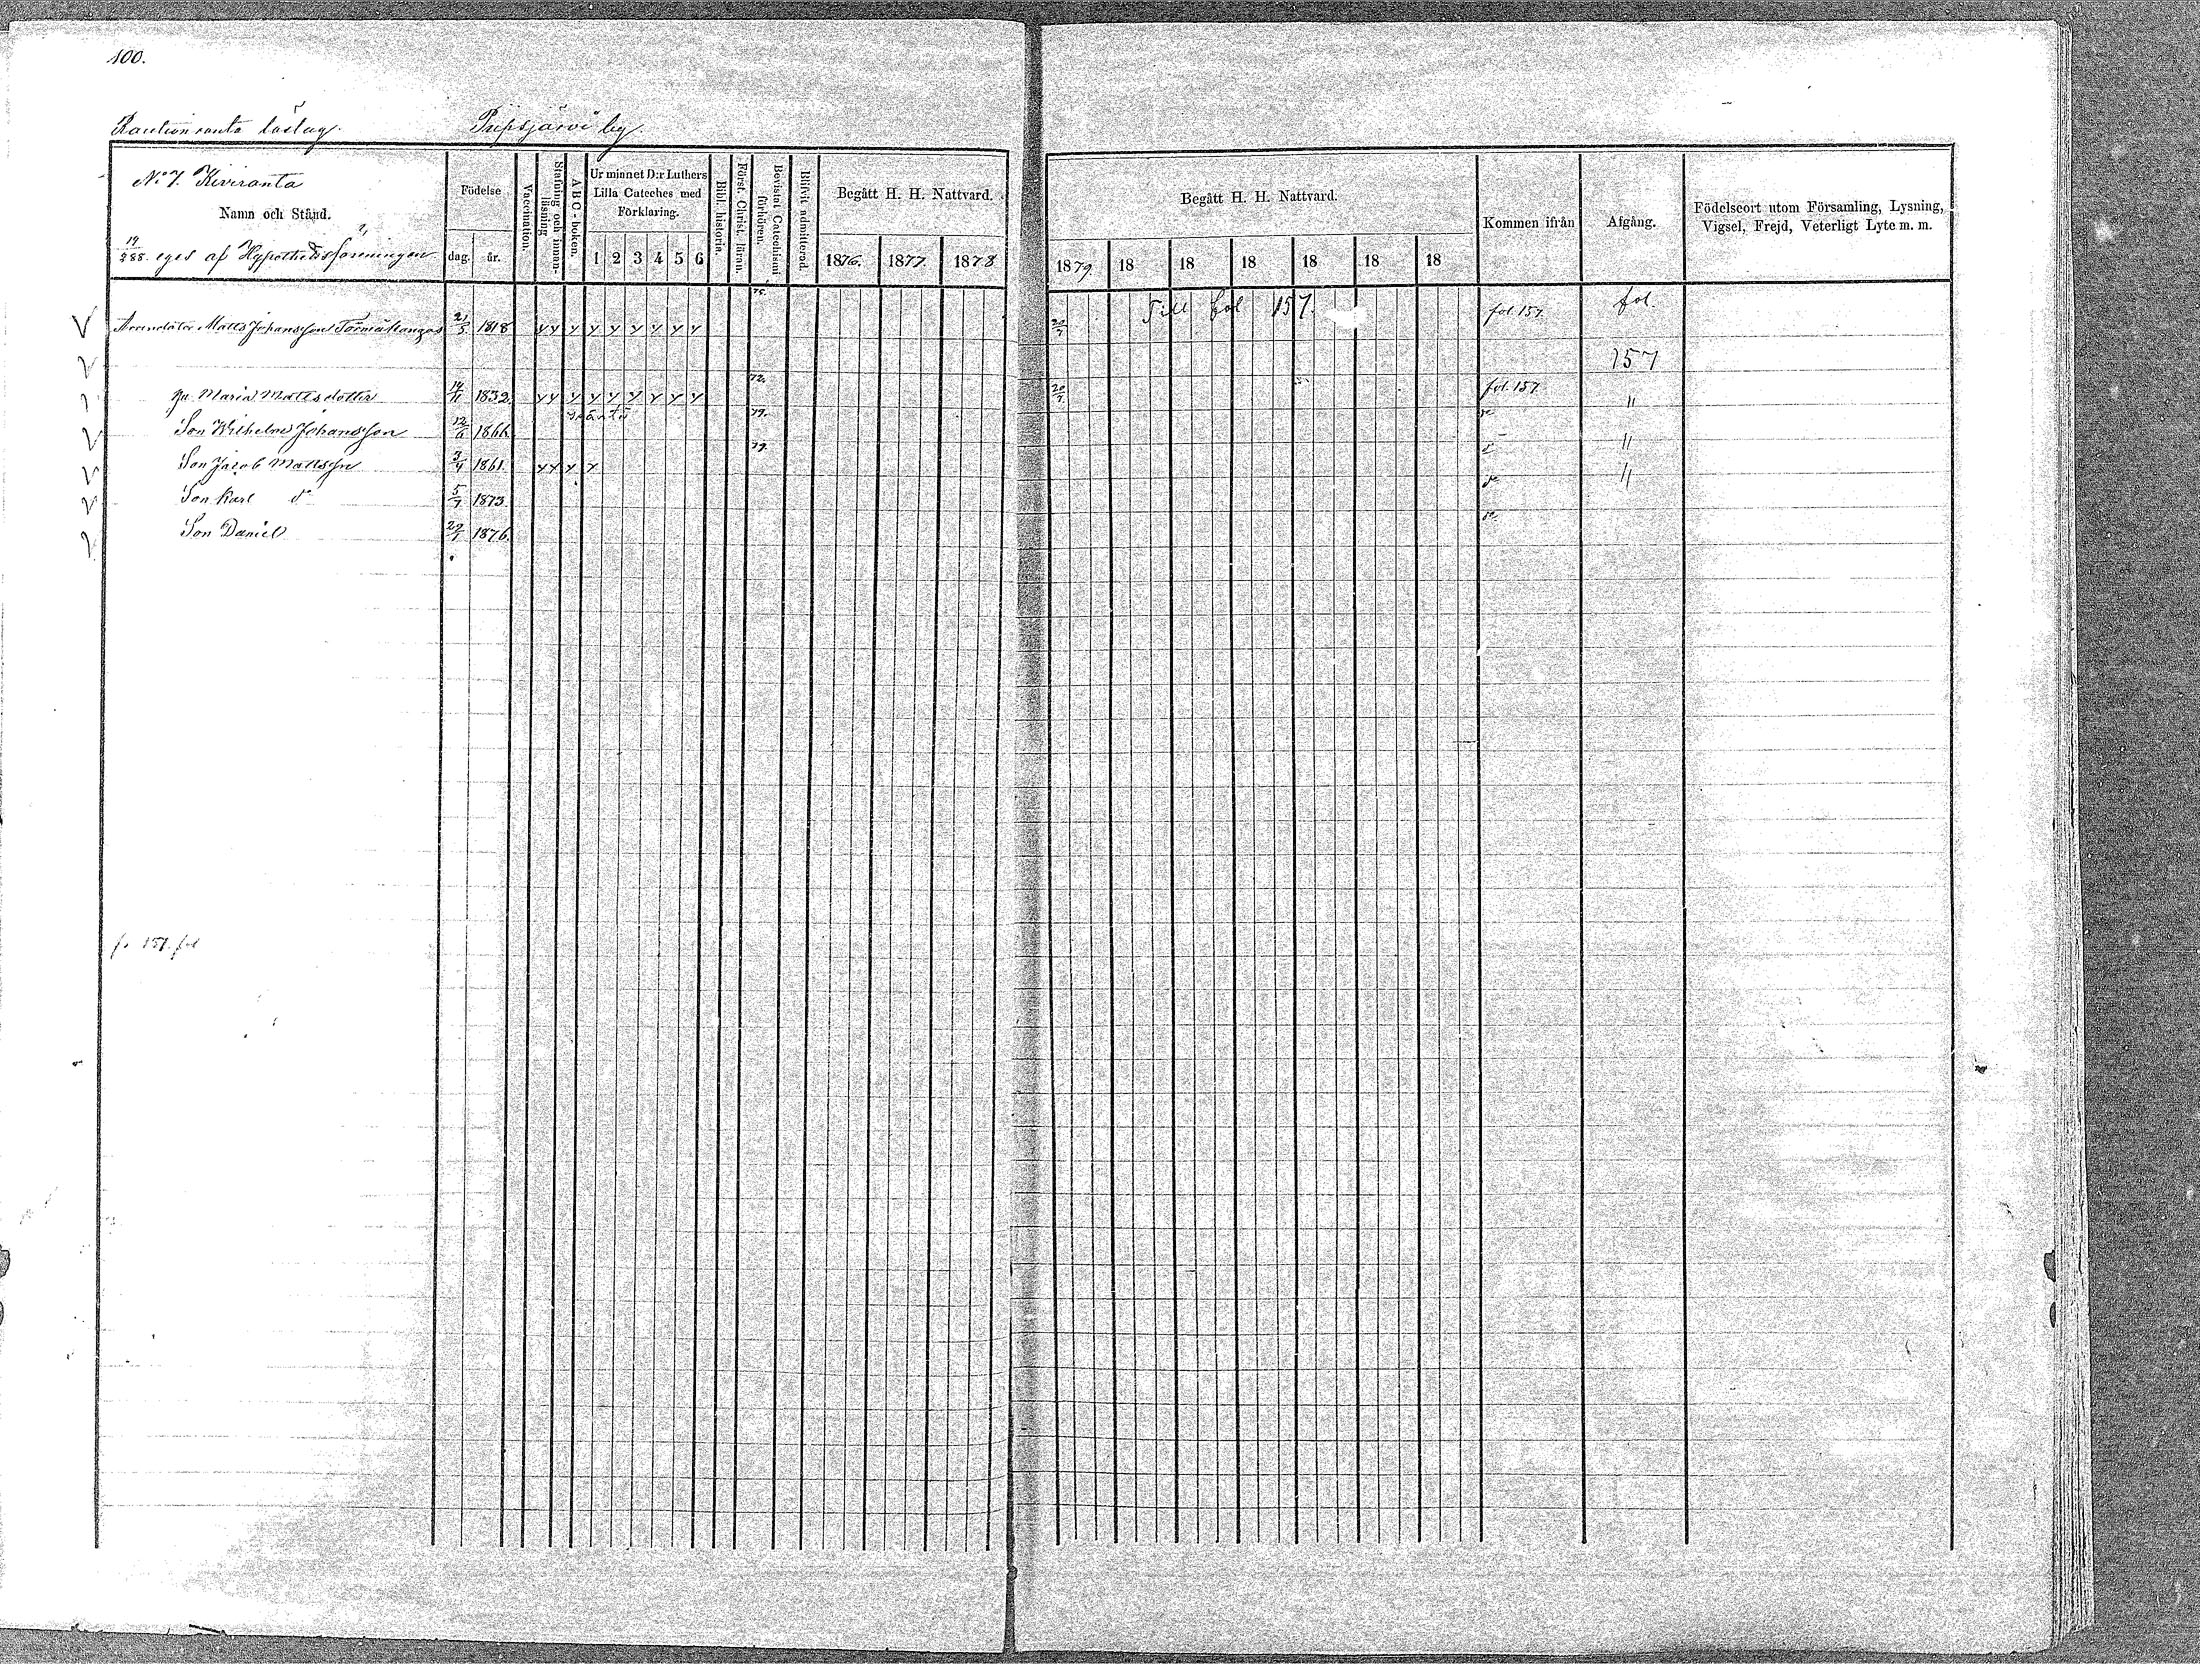 100.
Piipsjärvi by.
N:o 7. Kiviranta
Namn och Stånd.
19/288. eges af Hypotheksföreningen
Födelse
dag. år.
Vaccination.
Stafning och innan-läsning
ABC-boken.
Ur minnet D:r Luthers Lilla Cateches med Förklaring.
1 2 3 4 5 6
Bibl. historia.
Först. Christ. läran.
Bevistat Catechismi förhören.
Blifvit admitterad.
Begått H. H. Nattvard.
1876. 1877. 1878
Begått H. H. Nattvard.
1879 18 18 18 18 18 18
Kommen ifrån
Afgång.
Födelseort utom Församling, Lysning, Vigsel, Frejd, Veterligt Lyte m. m.
Arendator Matts Johansson Törmäkangas 21/5 1818 75. 20/7 Till fol 157. fol 157. fol.
157
hu. Maria Mattsdotter 14/11 1832. 72. 20/7 fol. 157. "
Son Wilhelm Johansson 12/6 1866 79. "
Son Jacob Mattsson 3/4 1861. 79. "
Son Karl d:o 5/7 1873.
Son Daniel 29/1 1876.
157. fol